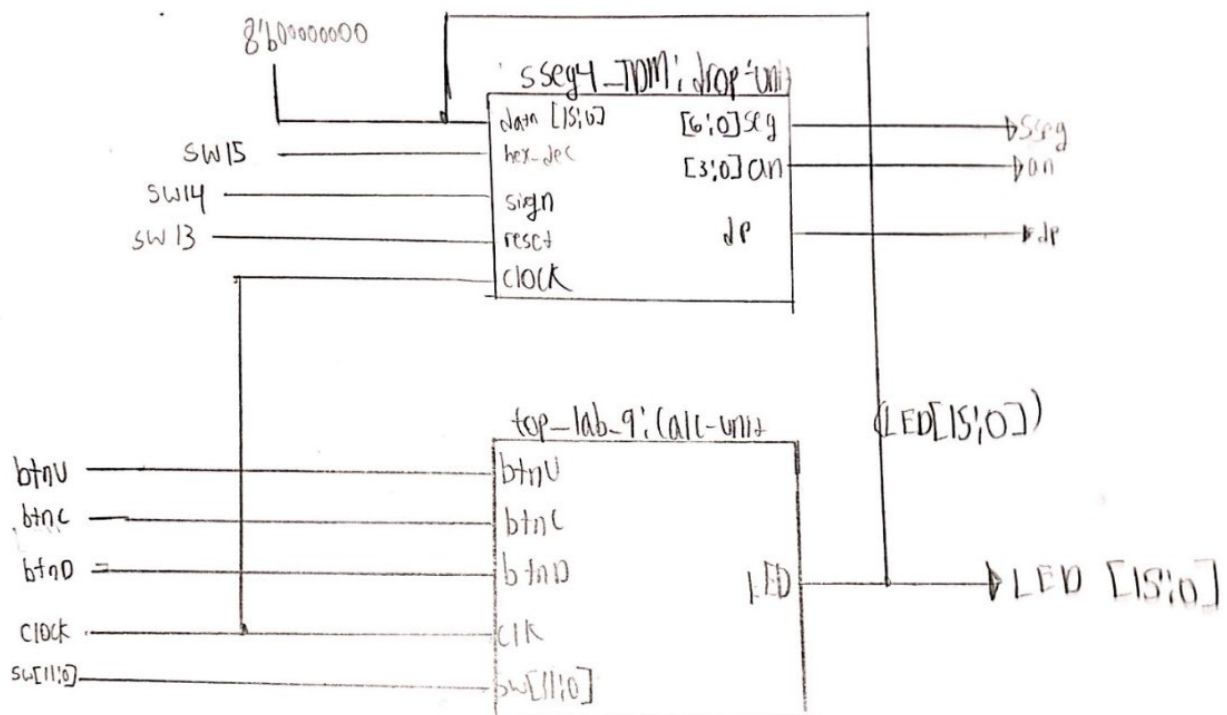 8'b00000000
sseg4_TDM: disp-unit
data [15:0] [6:0] seg sseg
SW15 hex_dec [3:0] an an
SW14 sign
SW13 reset dp dp
clock
top_lab_9: calc-unit (LED[15:0])
btnU btnU
btnC btnC
btnD btnD LED LED [15:0]
clock clk
sw[11:0] sw[11:0]